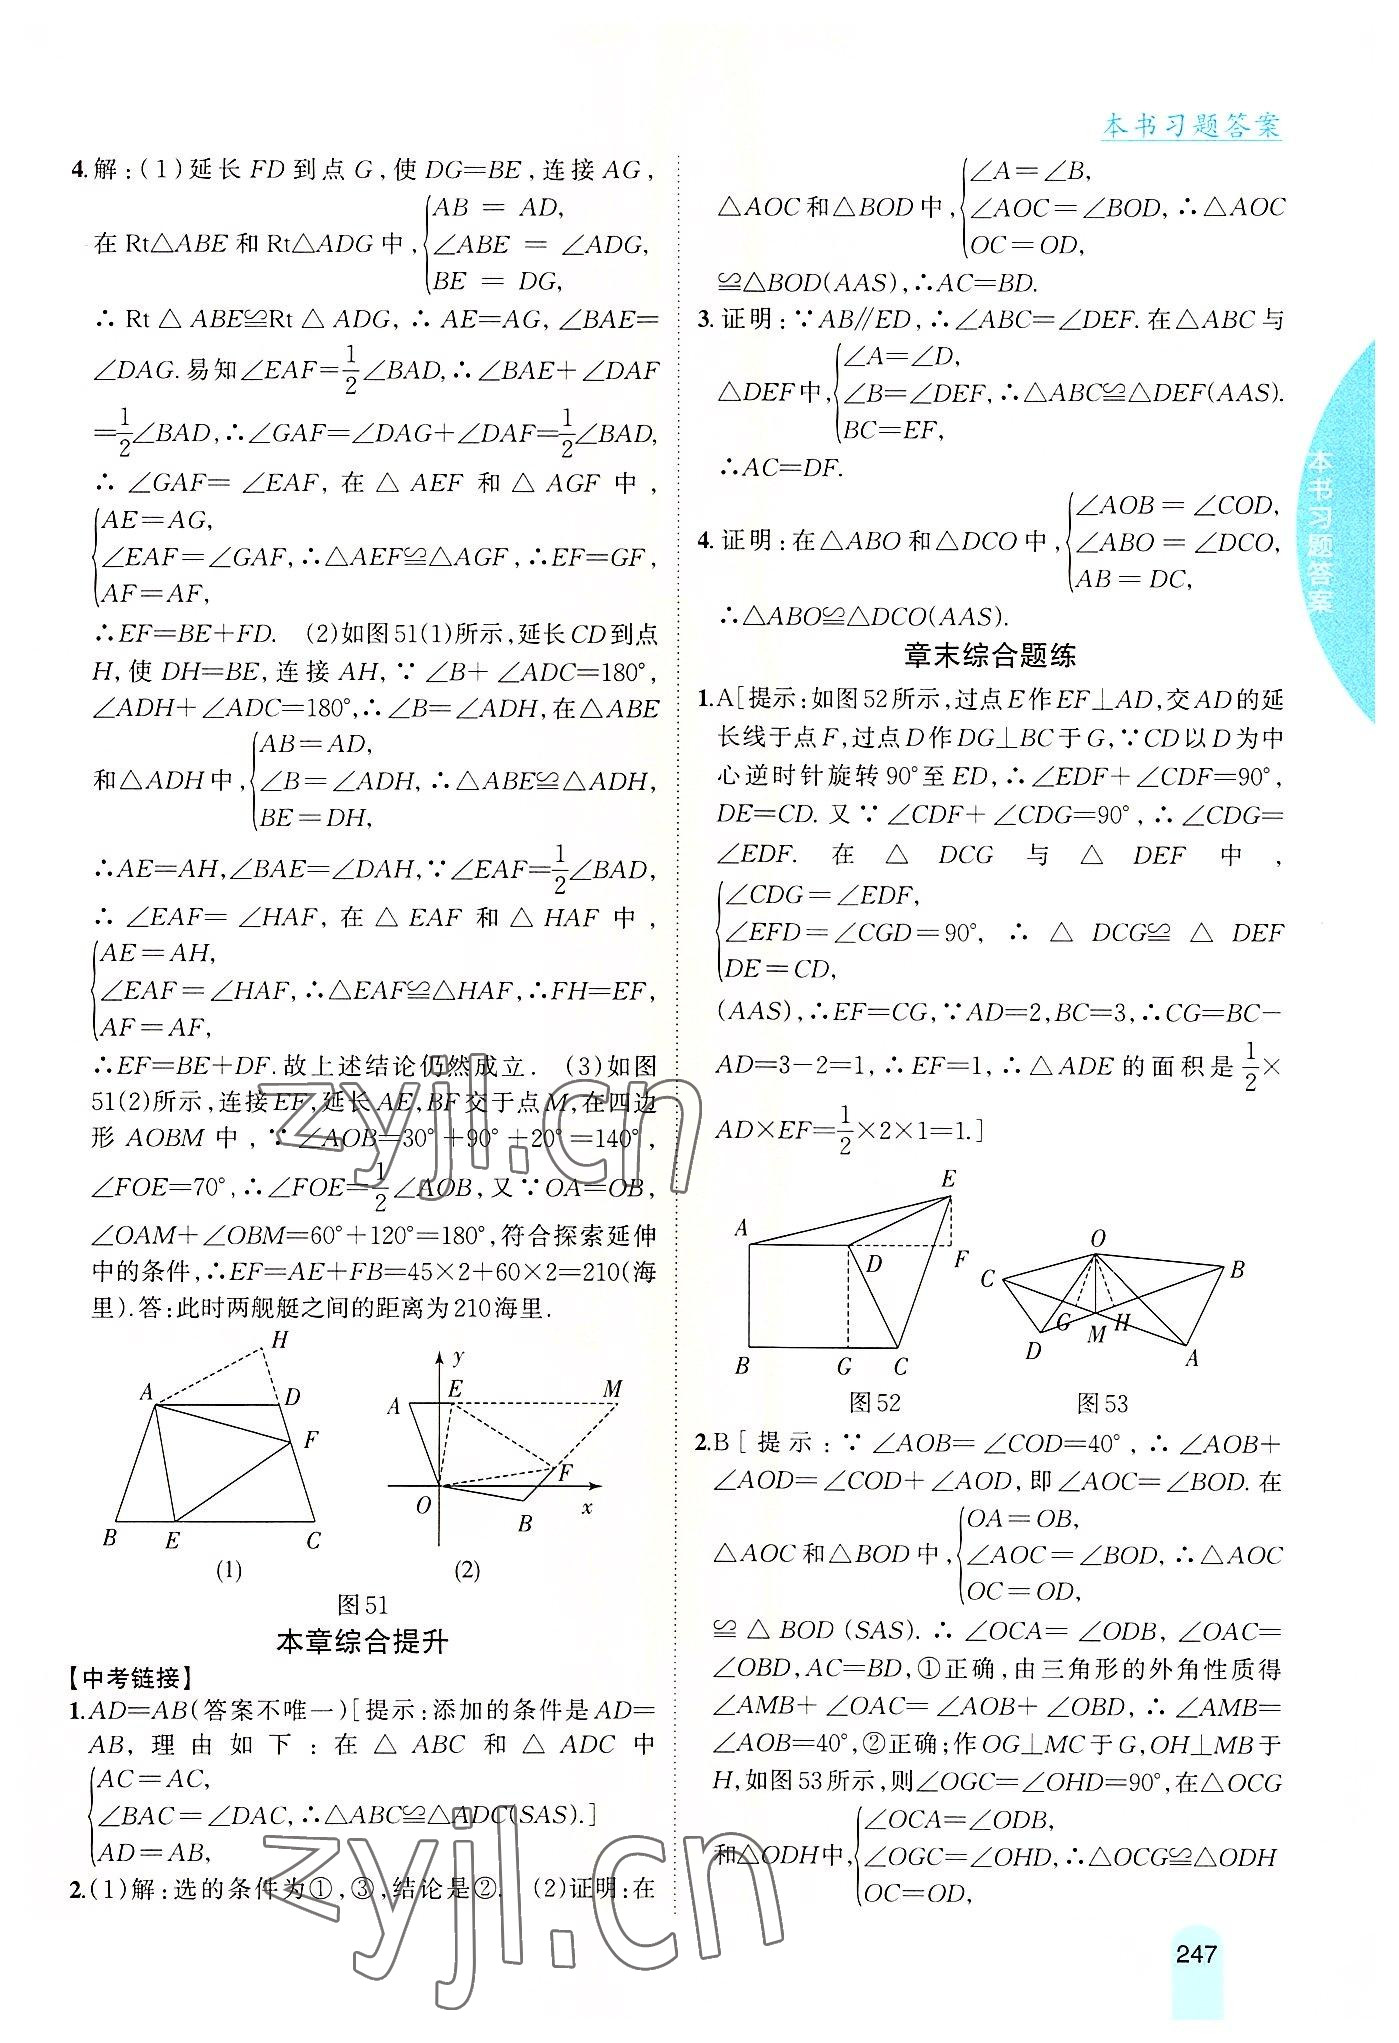 本书习题答案
4.解:(1)延长FD到点G,使DG=BE,连接AG,
在Rt△ABE和Rt△ADG中,{AB = AD,
∠ABE = ∠ADG,
BE = DG,
∴Rt△ABE≌Rt△ADG,∴AE=AG,∠BAE=
∠DAG.易知∠EAF=1/2∠BAD,∴∠BAE+∠DAF
=1/2∠BAD,∴∠GAF=∠DAG+∠DAF=1/2∠BAD,
∴∠GAF=∠EAF,在△AEF和△AGF中,
{AE=AG,
∠EAF=∠GAF,∴△AEF≌△AGF,∴EF=GF,
AF=AF,
∴EF=BE+FD. (2)如图51(1)所示,延长CD到点
H,使DH=BE,连接AH,∵∠B+∠ADC=180°,
∠ADH+∠ADC=180°,∴∠B=∠ADH,在△ABE
和△ADH中,{AB=AD,
∠B=∠ADH,∴△ABE≌△ADH,
BE=DH,
∴AE=AH,∠BAE=∠DAH,∵∠EAF=1/2∠BAD,
∴∠EAF=∠HAF,在△EAF和△HAF中,
{AE=AH,
∠EAF=∠HAF,∴△EAF≌△HAF,∴FH=EF,
AF=AF,
∴EF=BE+DF.故上述结论仍然成立. (3)如图
51(2)所示,连接EF,延长AE,BF交于点M,在四边
形AOBM中,∵∠AOB=30°+90°+20°=140°,
∠FOE=70°,∴∠FOE=1/2∠AOB,又∵OA=OB,
∠OAM+∠OBM=60°+120°=180°,符合探索延伸
中的条件,∴EF=AE+FB=45×2+60×2=210(海
里).答:此时两舰艇之间的距离为210海里.
H
A
D
F
B
E
C
(1)
y
A
E
M
F
O
B
x
(2)
图51
本章综合提升
【中考链接】
1.AD=AB(答案不唯一)[提示:添加的条件是AD=
AB,理由如下:在△ABC和△ADC中
{AC=AC,
∠BAC=∠DAC,∴△ABC≌△ADC(SAS).]
AD=AB,
2.(1)解:选的条件为①,③,结论是②. (2)证明:在
△AOC和△BOD中,{∠A=∠B,
∠AOC=∠BOD,∴△AOC
OC=OD,
≌△BOD(AAS),∴AC=BD.
3.证明:∵AB∥ED,∴∠ABC=∠DEF.在△ABC与
△DEF中,{∠A=∠D,
∠B=∠DEF,∴△ABC≌△DEF(AAS).
BC=EF,
∴AC=DF.
4.证明:在△ABO和△DCO中,{∠AOB=∠COD,
∠ABO=∠DCO,
AB=DC,
∴△ABO≌△DCO(AAS).
章末综合题练
1.A[提示:如图52所示,过点E作EF⊥AD,交AD的延
长线于点F,过点D作DG⊥BC于G,∵CD以D为中
心逆时针旋转90°至ED,∴∠EDF+∠CDF=90°,
DE=CD.又∵∠CDF+∠CDG=90°,∴∠CDG=
∠EDF.在△DCG与△DEF中,
{∠CDG=∠EDF,
∠EFD=∠CGD=90°,∴△DCG≌△DEF
DE=CD,
(AAS),∴EF=CG,∵AD=2,BC=3,∴CG=BC-
AD=3-2=1,∴EF=1,∴△ADE的面积是1/2×
AD×EF=1/2×2×1=1.]
E
A
D
F
B
G
C
图52
O
C
B
G
M
H
D
A
图53
2.B[提示:∵∠AOB=∠COD=40°,∴∠AOB+
∠AOD=∠COD+∠AOD,即∠AOC=∠BOD.在
△AOC和△BOD中,{OA=OB,
∠AOC=∠BOD,∴△AOC
OC=OD,
≌△BOD(SAS).∴∠OCA=∠ODB,∠OAC=
∠OBD,AC=BD,①正确,由三角形的外角性质得
∠AMB+∠OAC=∠AOB+∠OBD,∴∠AMB=
∠AOB=40°,②正确;作OG⊥MC于G,OH⊥MB于
H,如图53所示,则∠OGC=∠OHD=90°,在△OCG
和△ODH中,{∠OCA=∠ODB,
∠OGC=∠OHD,∴△OCG≌△ODH
OC=OD,
本书习题答案
247
zyjl.cn
zyjl.cn